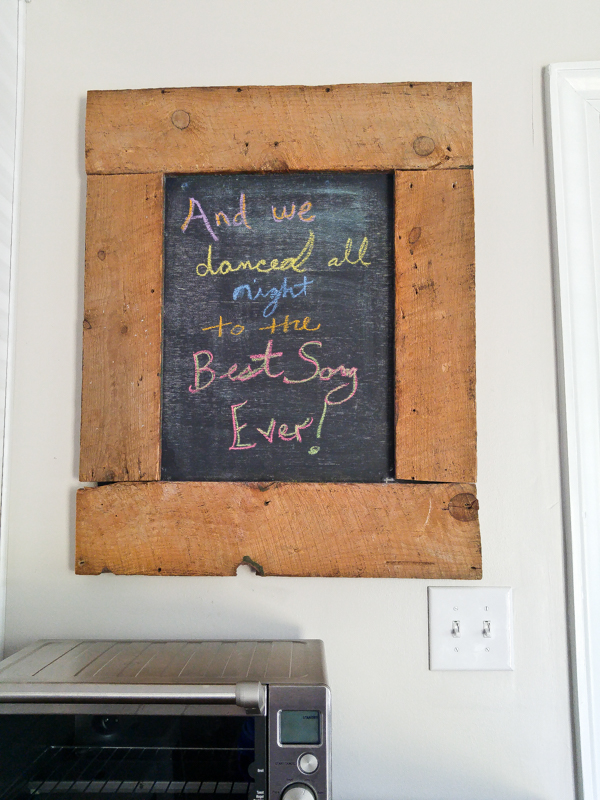 And we
danced all
night
to the
Best Song
Ever!